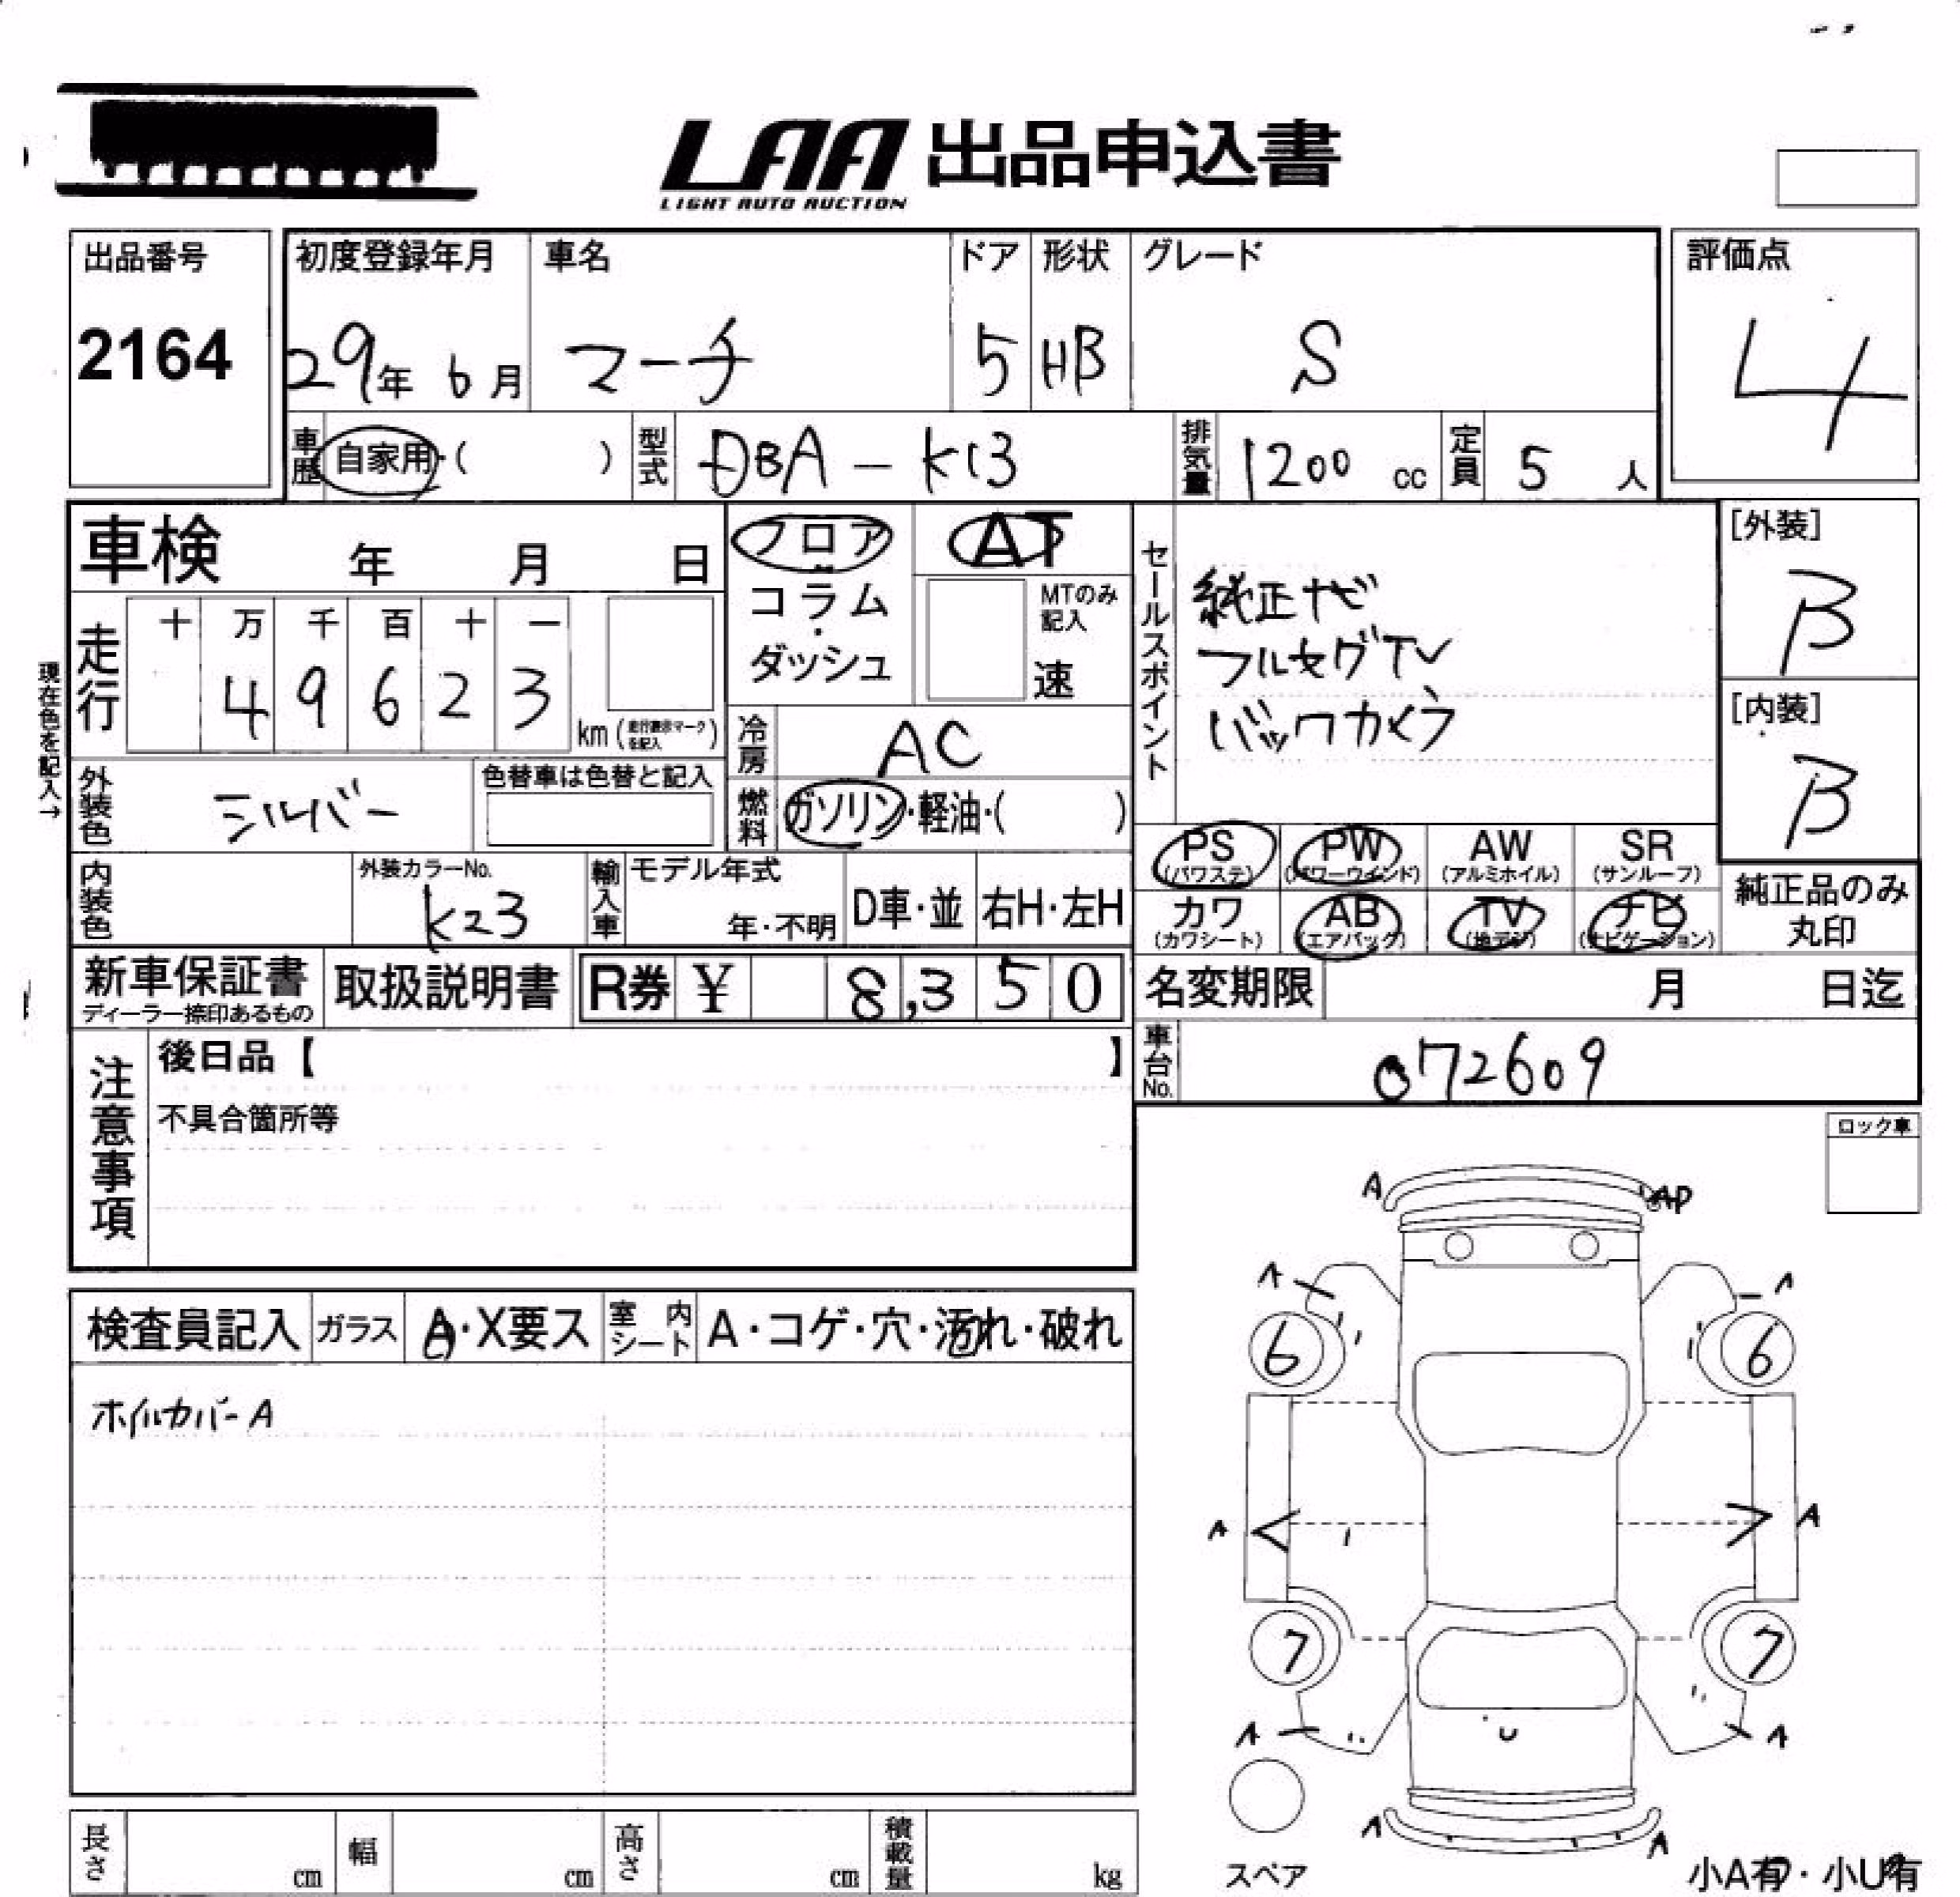 LAA 出品申込書
LIGHT AUTO AUCTION
出品番号
2164
初度登録年月
29年 6月
車名
マーチ
ドア
5
形状
HB
グレード
S
評価点
4
車歴
自家用・( )
型式
DBA-K13
排気量
1200 cc
定員
5 人
車検 年 月 日
フロア
コラム
・
ダッシュ
AT
MTのみ
記入
速
セールスポイント
純正ナビ
フルセグTV
バックカメラ
[外装]
B
[内装]
B
現在色を記入→
走行
十 万 千 百 十 一
4 9 6 2 3
km (走行表示マークを記入)
冷房
AC
外装色
シルバー
色替車は色替と記入
燃料
ガソリン・軽油・( )
PS
(パワステ)
PW
(パワーウインド)
AW
(アルミホイル)
SR
(サンルーフ)
内装色
外装カラーNo.
K23
輸入車
モデル年式
年・不明
D車・並
右H・左H
カワ
(カワシート)
AB
(エアバッグ)
TV
(地デジ)
ナビ
(ナビゲーション)
純正品のみ
丸印
新車保証書
ディーラー捺印あるもの
取扱説明書
R券 ¥ 8,350
名変期限 月 日迄
車台No.
072609
注意事項
後日品【 】
不具合箇所等
ロック車
A AP
A A
6 6
A A
7 7
A A
A A
検査員記入
ガラス
A・X要ス
室内シート
A・コゲ・穴・汚れ・破れ
ホイルカバーA
長さ cm
幅 cm
高さ cm
積載量 kg
スペア
小A有・小U有